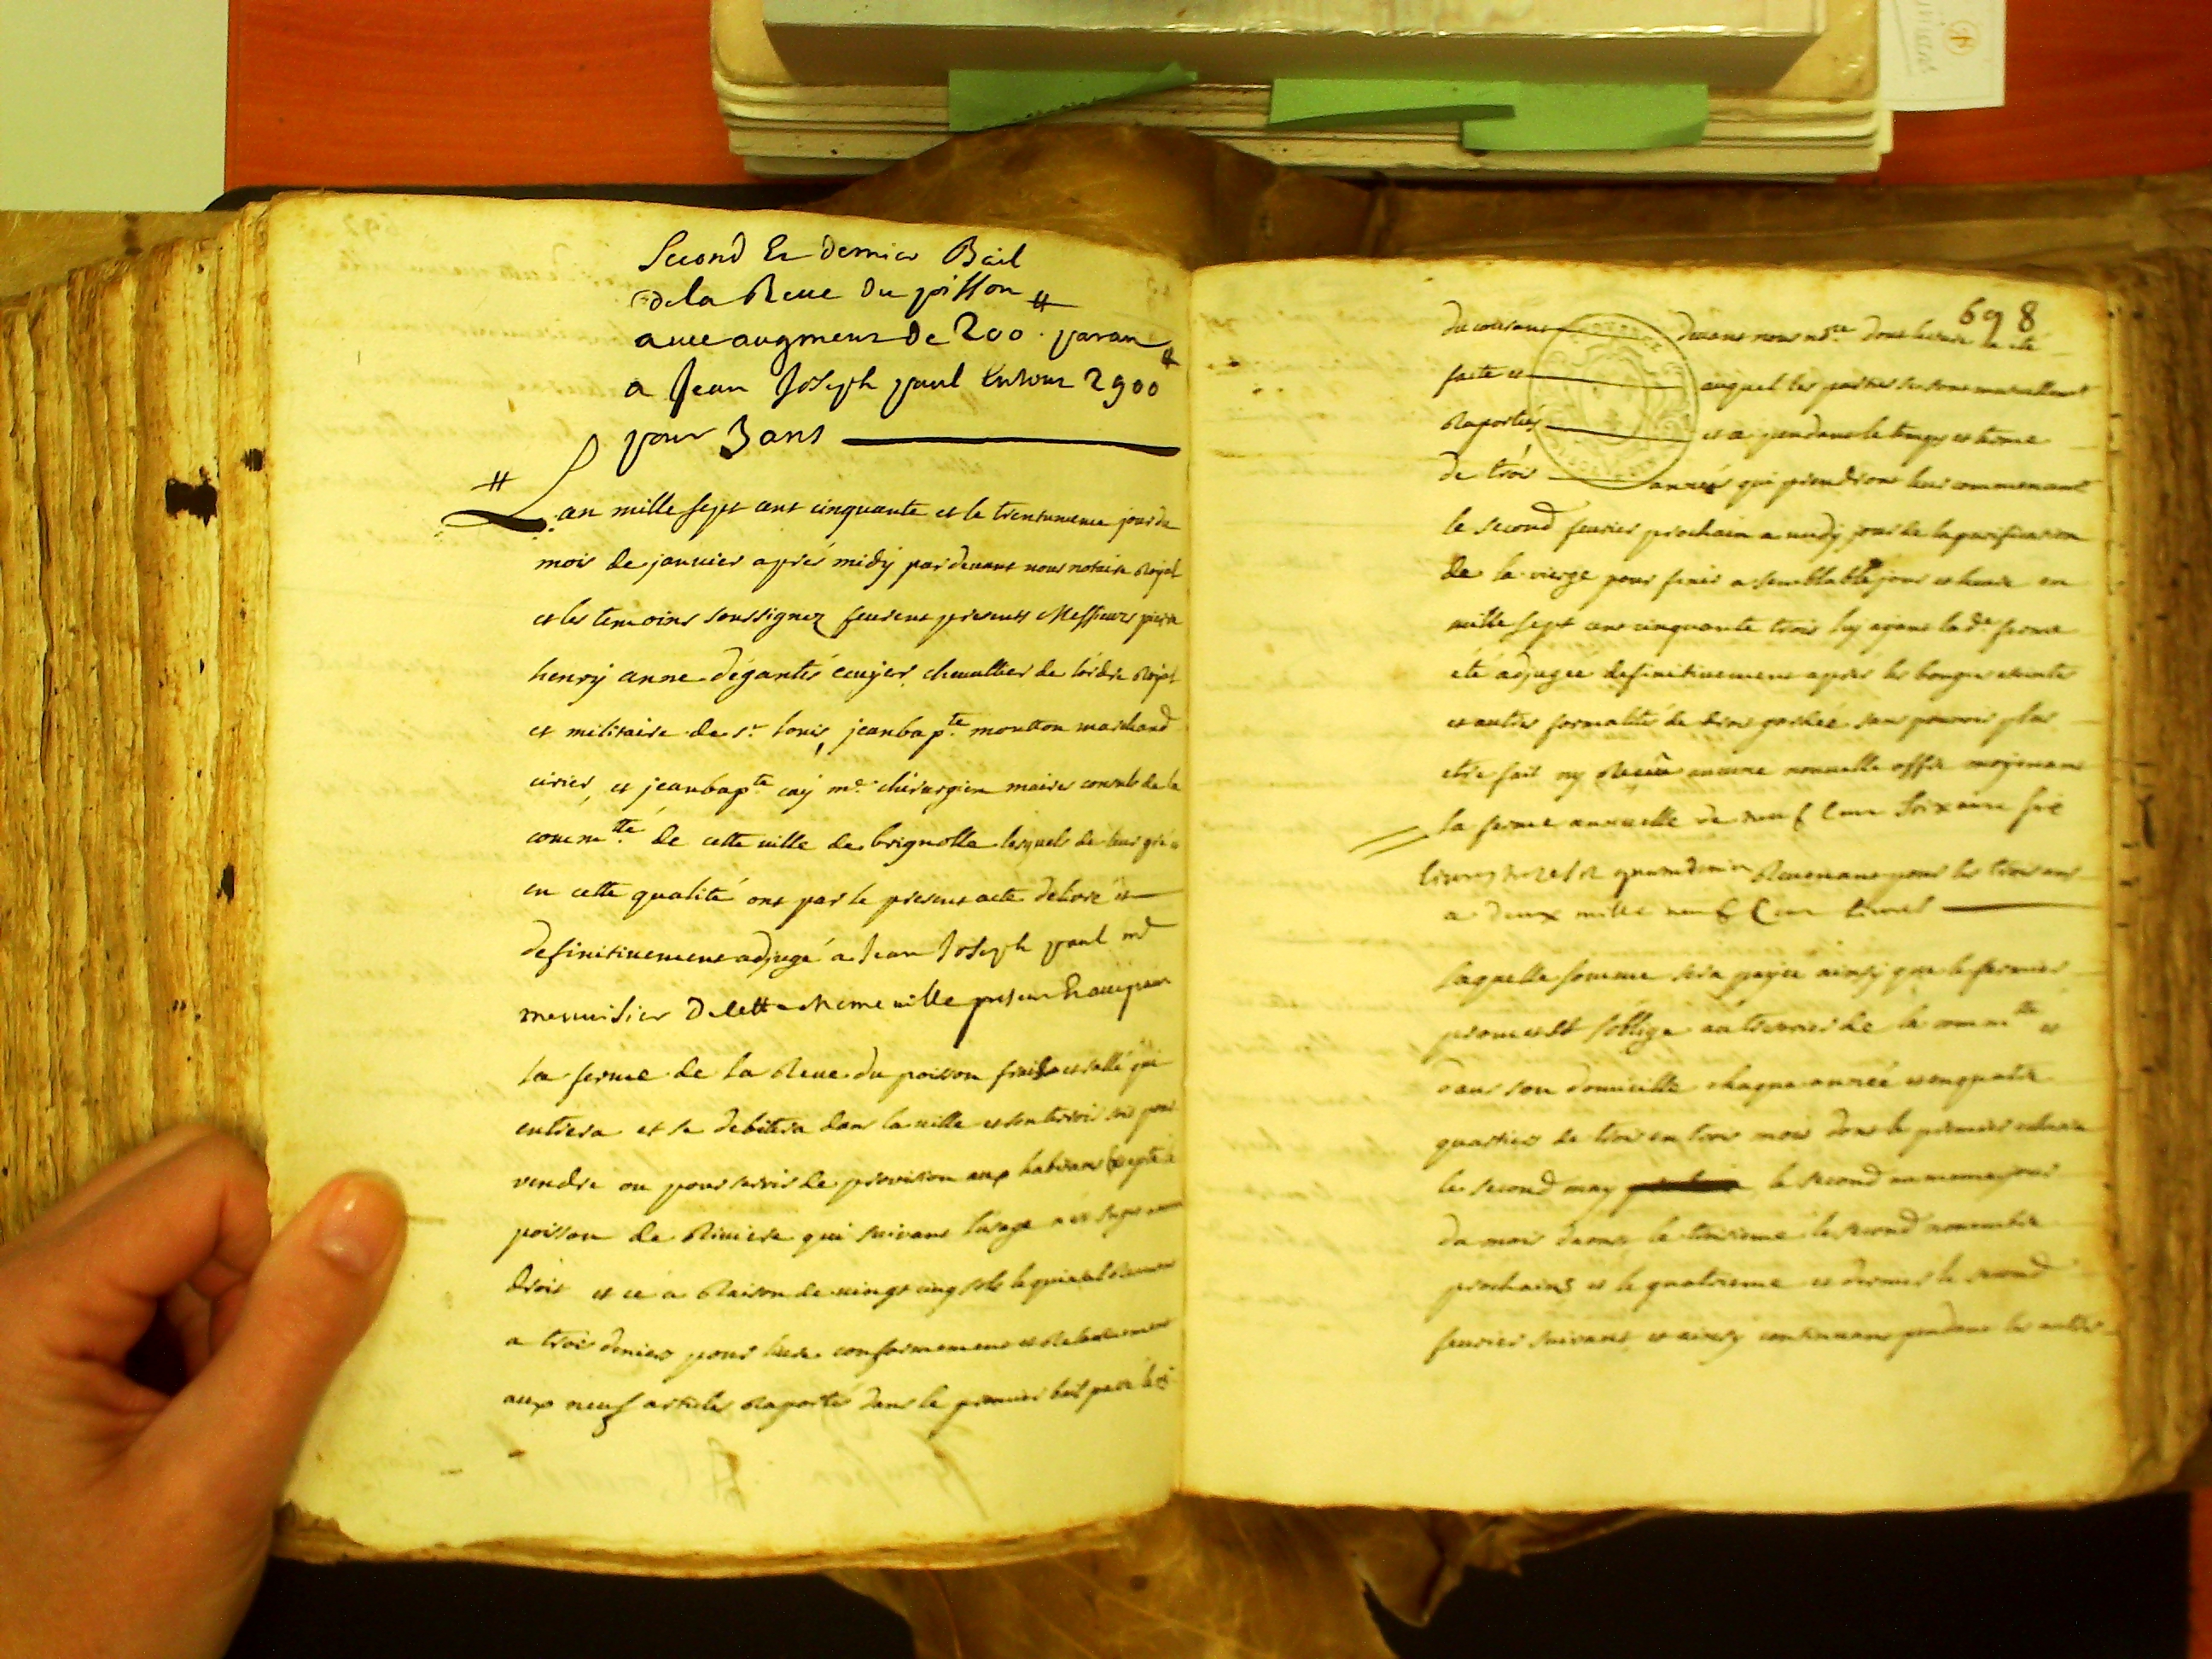 Second Et dernier Bail
de la Reve du poisson
avec augment de 200 # par an
a Jean Joseph paul En tout 2900 #
pour 3 ans
L'an mille sept cent cinquante et le trente unieme jour du
mois de janvier aprés midy par devant nous notaire Royal
et les temoins soussignez feurent presents Messieurs pierre
henry anne dégantés ecuyer chevallier de lórdre Royal
et militaire de st. louis, jean bapte. moutton marchand
cirier, et jean bapte mtre. chirurgien maires consuls de la
commtté. de cette ville de brignolle lesquels de leur gré
en cette qualité ont par le present acte delivré et
definitivement adjugé a Jean Joseph paul md
menuisier De cette Meme ville present Et acceptant
la ferme de la Reve du poisson frais et sallé qui
entrera et se debitera dans la ville et son terroir soit pour
vendre ou pour servir de provision aux habitans Excepté le
poisson de Riviere qui suivant lusage n'est sujet a aucun
droit et ce a Raison de vingt cinq sols le quintal
a trois deniers pour livre conformement et Relativement
aux neuf articles Raportés dans le premier bail passé le
698
du courant devant nous nore. dont lecture a eté
faite et auquel les parties se sont
Raportés et ce pendant le temps et terme
de trois années qui prendront leur commencent
le second fevrier prochain a midy jour de la purification
de la vierge pour finir a semblable jour et heure en
mille sept cent cinquante trois luy ayant lade. ferme
eté adjugee definitivement aprés les bougies eteintes
et autres formalités de droit gardées sans pouvoir plus
etre fait ny Receu aucune nouvelle offre moyenant
la ferme annuelle de neuf Cent soixante six
livres treze sols quatre deniers Revenant pour les trois ans
a deux mille neuf Cent livres
laquelle somme sera payée ainsy que le fermier
promet et s'oblige au tresorier de la commtté et
dans son domicille chaque année en quatre
quartiers de trois en trois mois dont le premier
le second may le second au meme jour
du mois daoust, le troisieme le second novembre
prochains et le quatrieme et dernier le second
fevrier suivant, et ainsy continuant pendant les autres